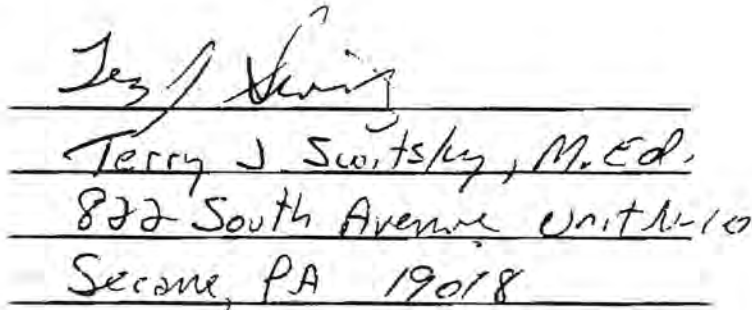 Terry J. Switsky, M.Ed.
822 South Avenue Unit N-10
Secane, PA 19018